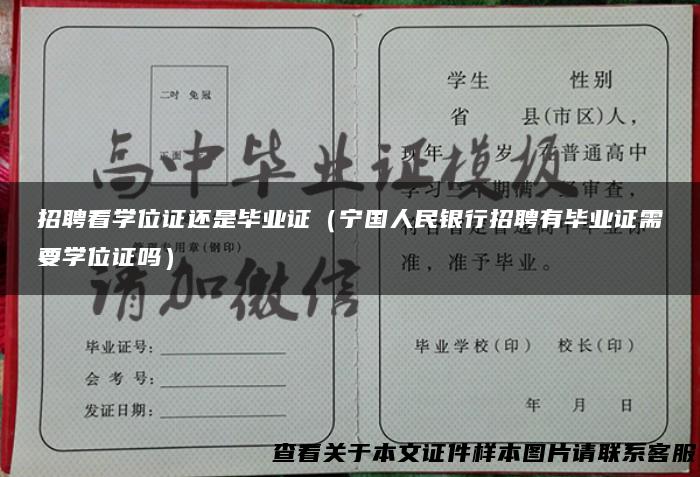 学生 性别
二吋 免冠
省 县(市区)人，
高中毕业证模板
正面
现年 岁，在普通高中
学习 年期满 审查，
招聘看学位证还是毕业证（宁国人民银行招聘有毕业证需
要学位证吗）
用章(钢印)
准，准予毕业。
请加微信
毕业证号：
会 考 号：
发证日期：
毕业学校(印) 校长(印)
年 月 日
查看关于本文证件样本图片请联系客服